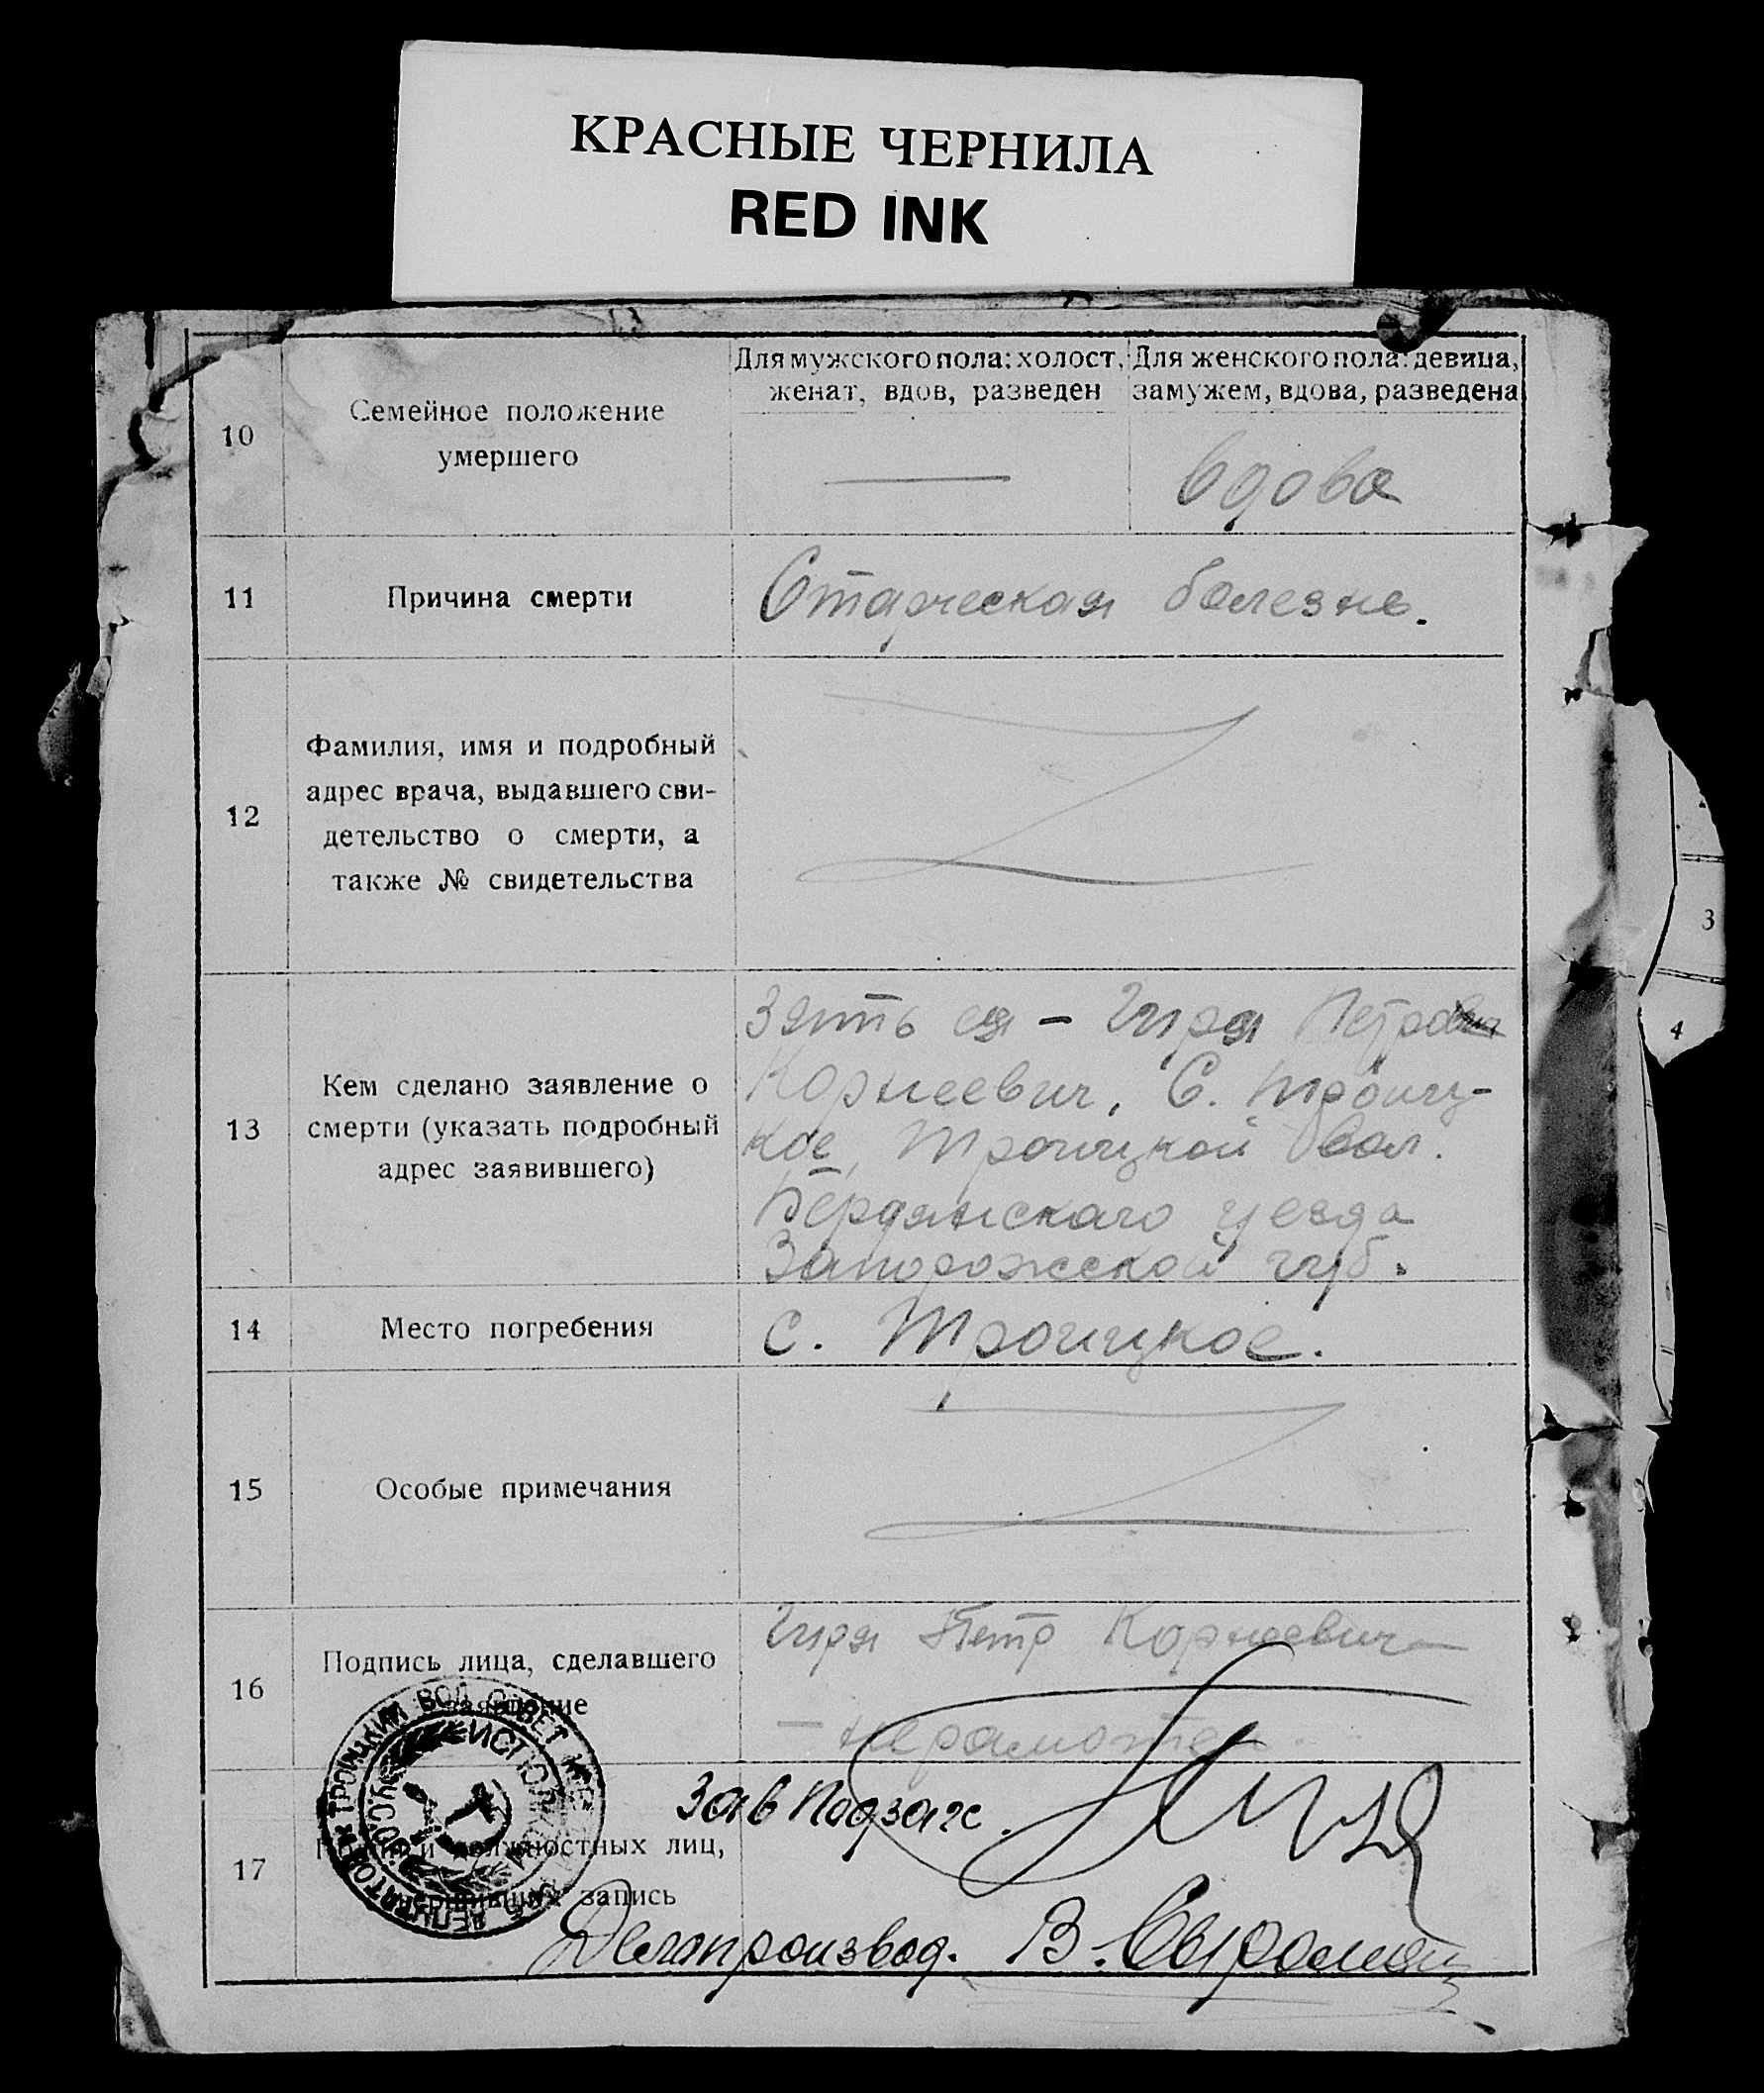 КРАСНЫЕ ЧЕРНИЛА
RED INK
10
Семейное положение
умершего
Для мужского пола: холост,
женат, вдов, разведен
Для женского пола: девица,
замужем, вдова, разведена
вдова
11
Причина смерти
Старческая болезнь.
12
Фамилия, имя и подробный
адрес врача, выдавшего сви-
детельство о смерти, а
также № свидетельства
13
Кем сделано заявление о
смерти (указать подробный
адрес заявившего)
Зять ея - Гиря
Корнеевич, С. Троиц-
кое, Троицкой вол.
Бердянскаго уезда
Запорожской губ.
14
Место погребения
с. Троицкое.
15
Особые примечания
16
Подпись лица, сделавшего
заявление
Гиря Петр Корнеевич
- неграмотен
17
Подписи должностных лиц,
запись
Зав Подзаг.
Делопроизвод. В.
ТРОИЦКИЙ ВОЛ. СОВЕТ
ИСПОЛКОМ
У.С.С.Р.
3
4